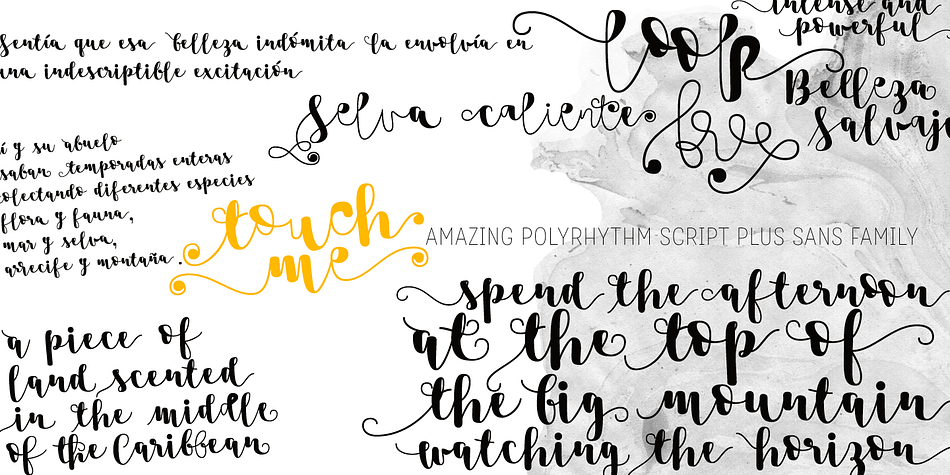 sentía que esa belleza indómita la envolvía en
una indescriptible excitación
loop
intense and
powerful
Belleza
Salvaje
selva caliente
love
y su abuelo
temporadas enteras
colectando diferentes especies
flora y fauna,
mar y selva,
arrecife y montaña.
touch
me
AMAZING POLYRHYTHM SCRIPT PLUS SANS FAMILY
spend the afternoon
at the top of
the big mountain
watching the horizon
a piece of
land scented
in the middle
of the Caribbean